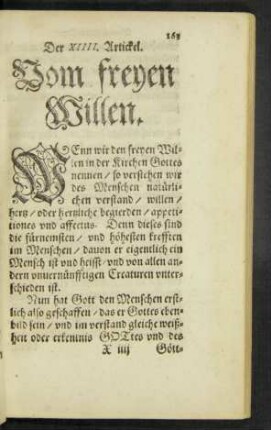 161
Der XIIII. Artickel.
Vom freyen
Willen.
WEnn wir den freyen Wil-
len in der Kirchen Gottes
nennen / so verstehen wir
des Menschen natürli-
chen verstand / willen /
hertz / oder hertzliche begierden / appeti-
tiones vnd affectus. Denn dieses sind
die fürnemsten / vnd höhesten krefften
im Menschen / dauon er eigentlich ein
Mensch ist vnd heisst / vnd von allen an-
dern vnuernünfftigen Creaturen unter-
schieden ist.
Nun hat Gott den Menschen erst-
lich also geschaffen / das er Gottes eben-
bild sein / vnd im verstand gleiche weiß-
heit oder erkentnis GOTtes vnd des
X iiij Gött-